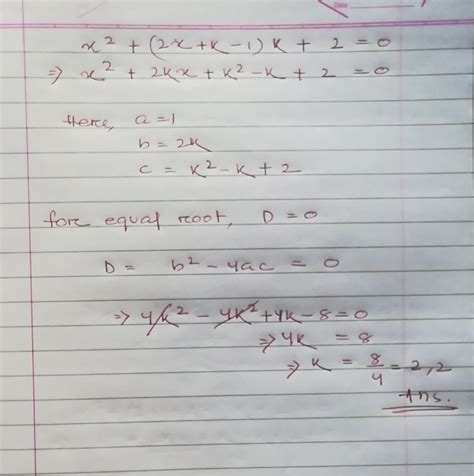 x² + (2x+k-1)k + 2 = 0
⇒ x² + 2kx + k² - k + 2 = 0
Here, a = 1
b = 2k
c = k² - k + 2
for equal root, D = 0
D = b² - 4ac = 0
⇒ 4k² - 4k² + 4k - 8 = 0
⇒ 4k = 8
⇒ k = 8/4 = 2, 2
Ans.